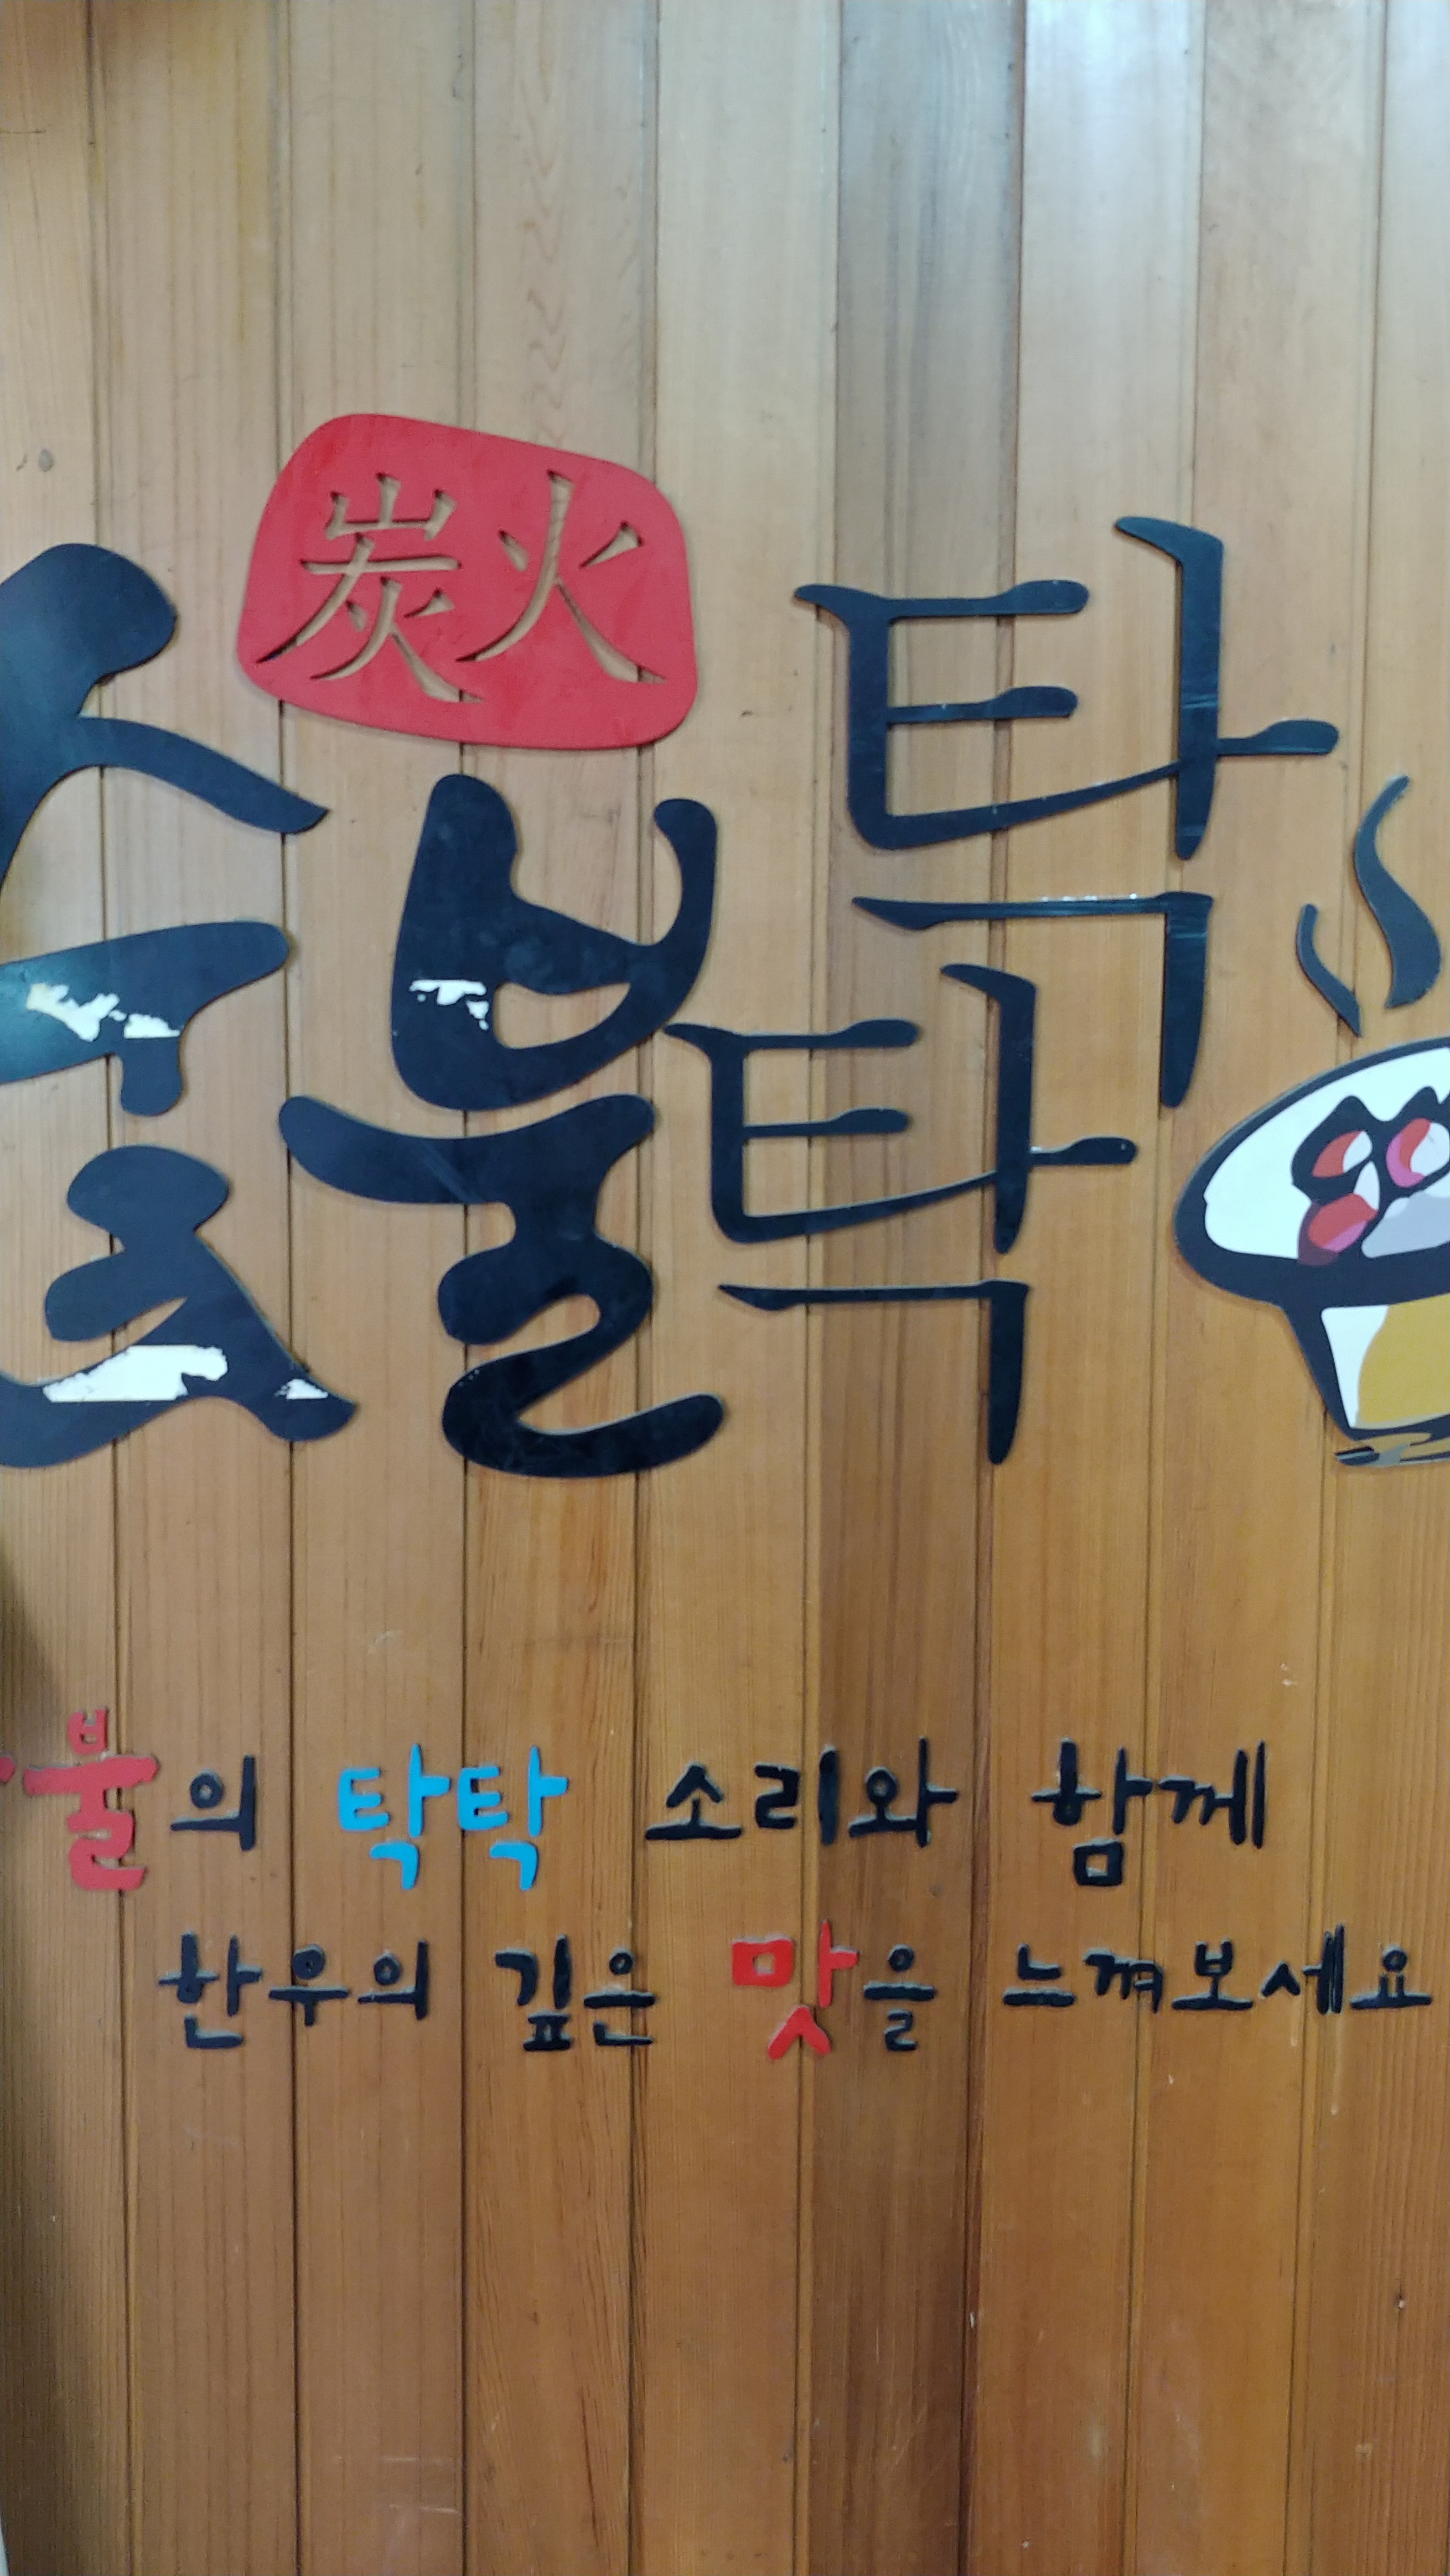 炭火
숯불탁탁
불의 탁탁 소리와 함께
한우의 깊은 맛을 느껴보세요